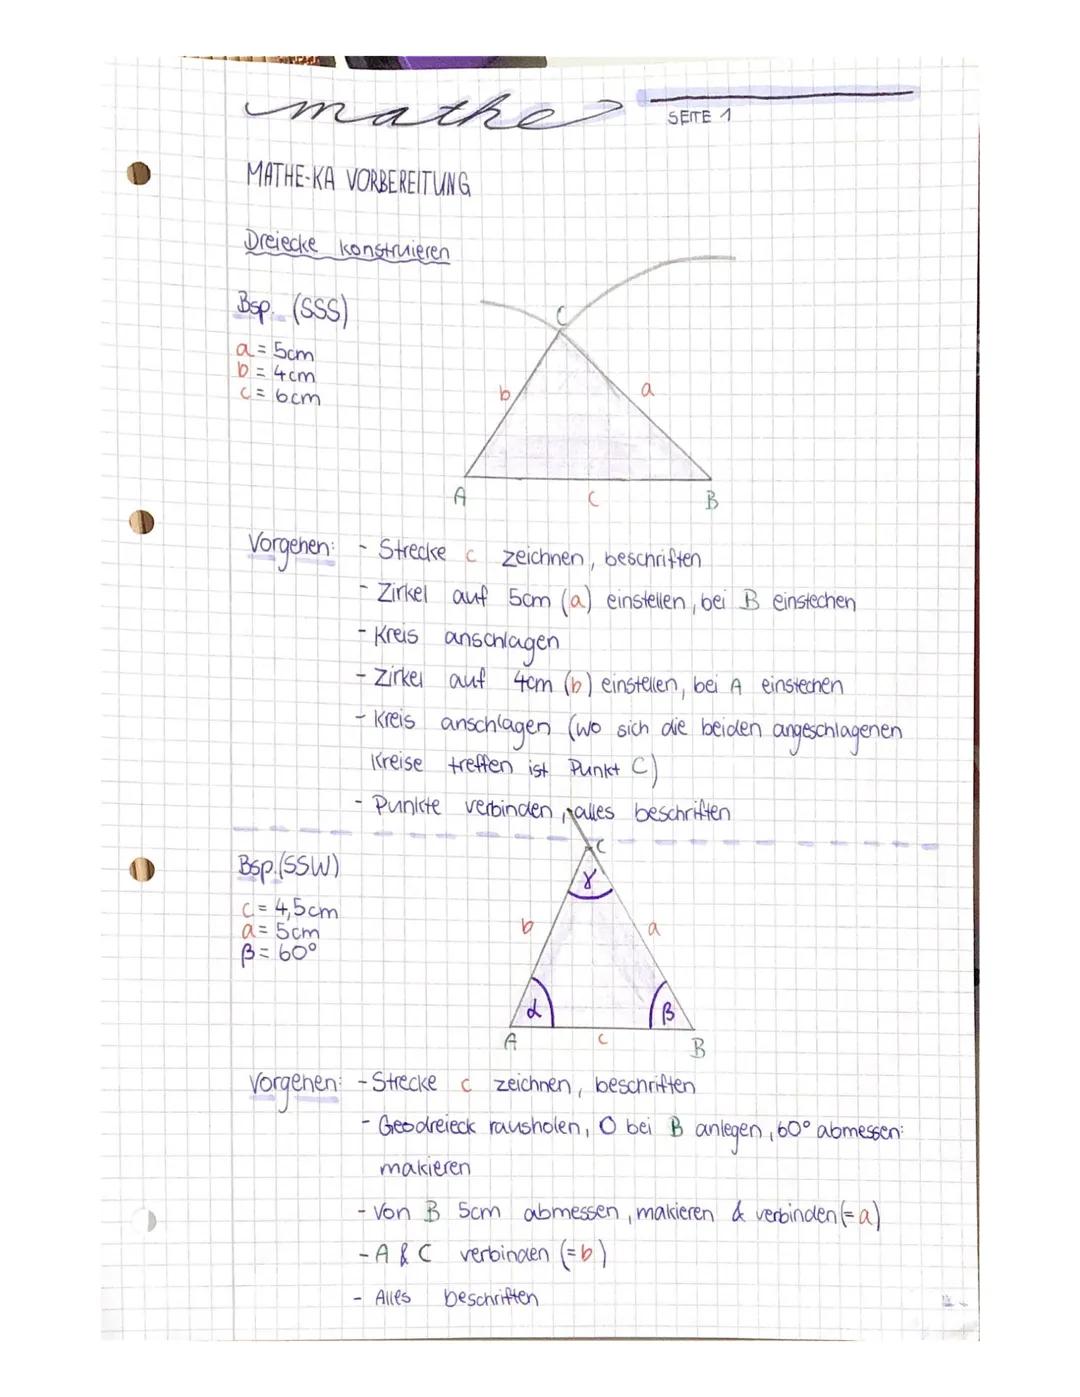 mathe
SEITE 1
MATHE-KA VORBEREITUNG
Dreiecke konstruieren
Bsp. (SSS)
a = 5cm
b = 4cm
c = 6cm
C
b
a
A
c
B
Vorgehen: - Strecke c zeichnen, beschriften
- Zirkel auf 5cm (a) einstellen, bei B einstechen
- Kreis anschlagen
- Zirkel auf 4cm (b) einstellen, bei A einstechen
- Kreis anschlagen (wo sich die beiden angeschlagenen
Kreise treffen ist Punkt C)
- Punkte verbinden, alles beschriften
Bsp. (SSW)
c = 4,5cm
a = 5cm
β = 60°
C
γ
b
a
α
β
A
c
B
Vorgehen: - Strecke c zeichnen, beschriften
- Geodreieck rausholen, O bei B anlegen, 60° abmessen:
makieren
- Von B 5cm abmessen, makieren & verbinden (= a)
- A & C verbinden (= b)
- Alles beschriften